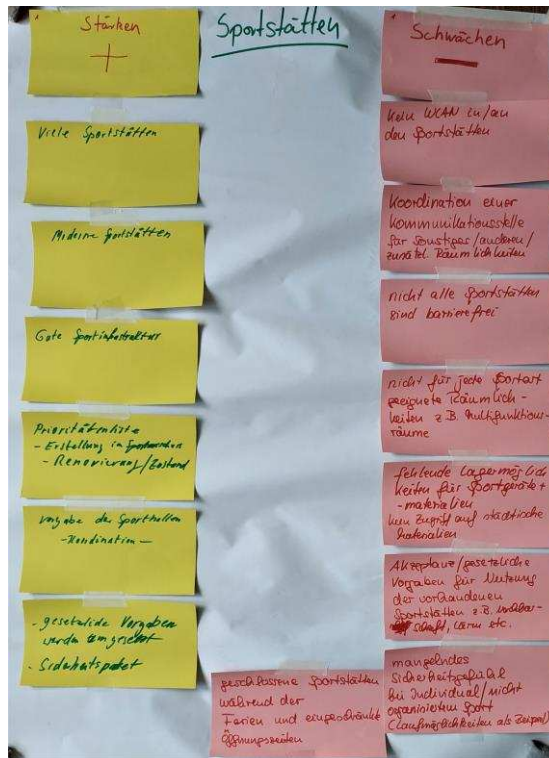 Sportstätten
Stärken
+
Viele Sportstätten
Moderne Sportstätten
Gute Sportinfrastruktur
Prioritätenliste
- Erstellung in
- Renovierung/Zustand
Vergabe der Sporthallen
- Koordination -
- gesetzliche Vorgaben
werden umgesetzt
- Sicherheitspaket
Schwächen
-
Kein WLAN in/an
den Sportstätten
Koordination einer
Kommunikationsstelle
für sonstiges/anderen/
zusätzl. Räumlichkeiten
nicht alle Sportstätten
sind barrierefrei
nicht für jede Sportart
geeignete Räumlich-
keiten z.B. Multifunktions-
räume
fehlende Lagermöglich
keiten für Sportgeräte +
- materialien
kein Zugriff auf städtische
Materialien
Akzeptanz/gesetzliche
Vorgaben für Nutzung
der vorhandenen
Sportstätten z.B. Nachbar-
schaft, Lärm etc.
mangelndes
Sicherheitsgefühl
bei Individual/nicht
organisiertem Sport
(Laufmöglichkeiten als Beispiel)
geschlossene Sportstätten
während der
Ferien und eingeschränkte
Öffnungszeiten